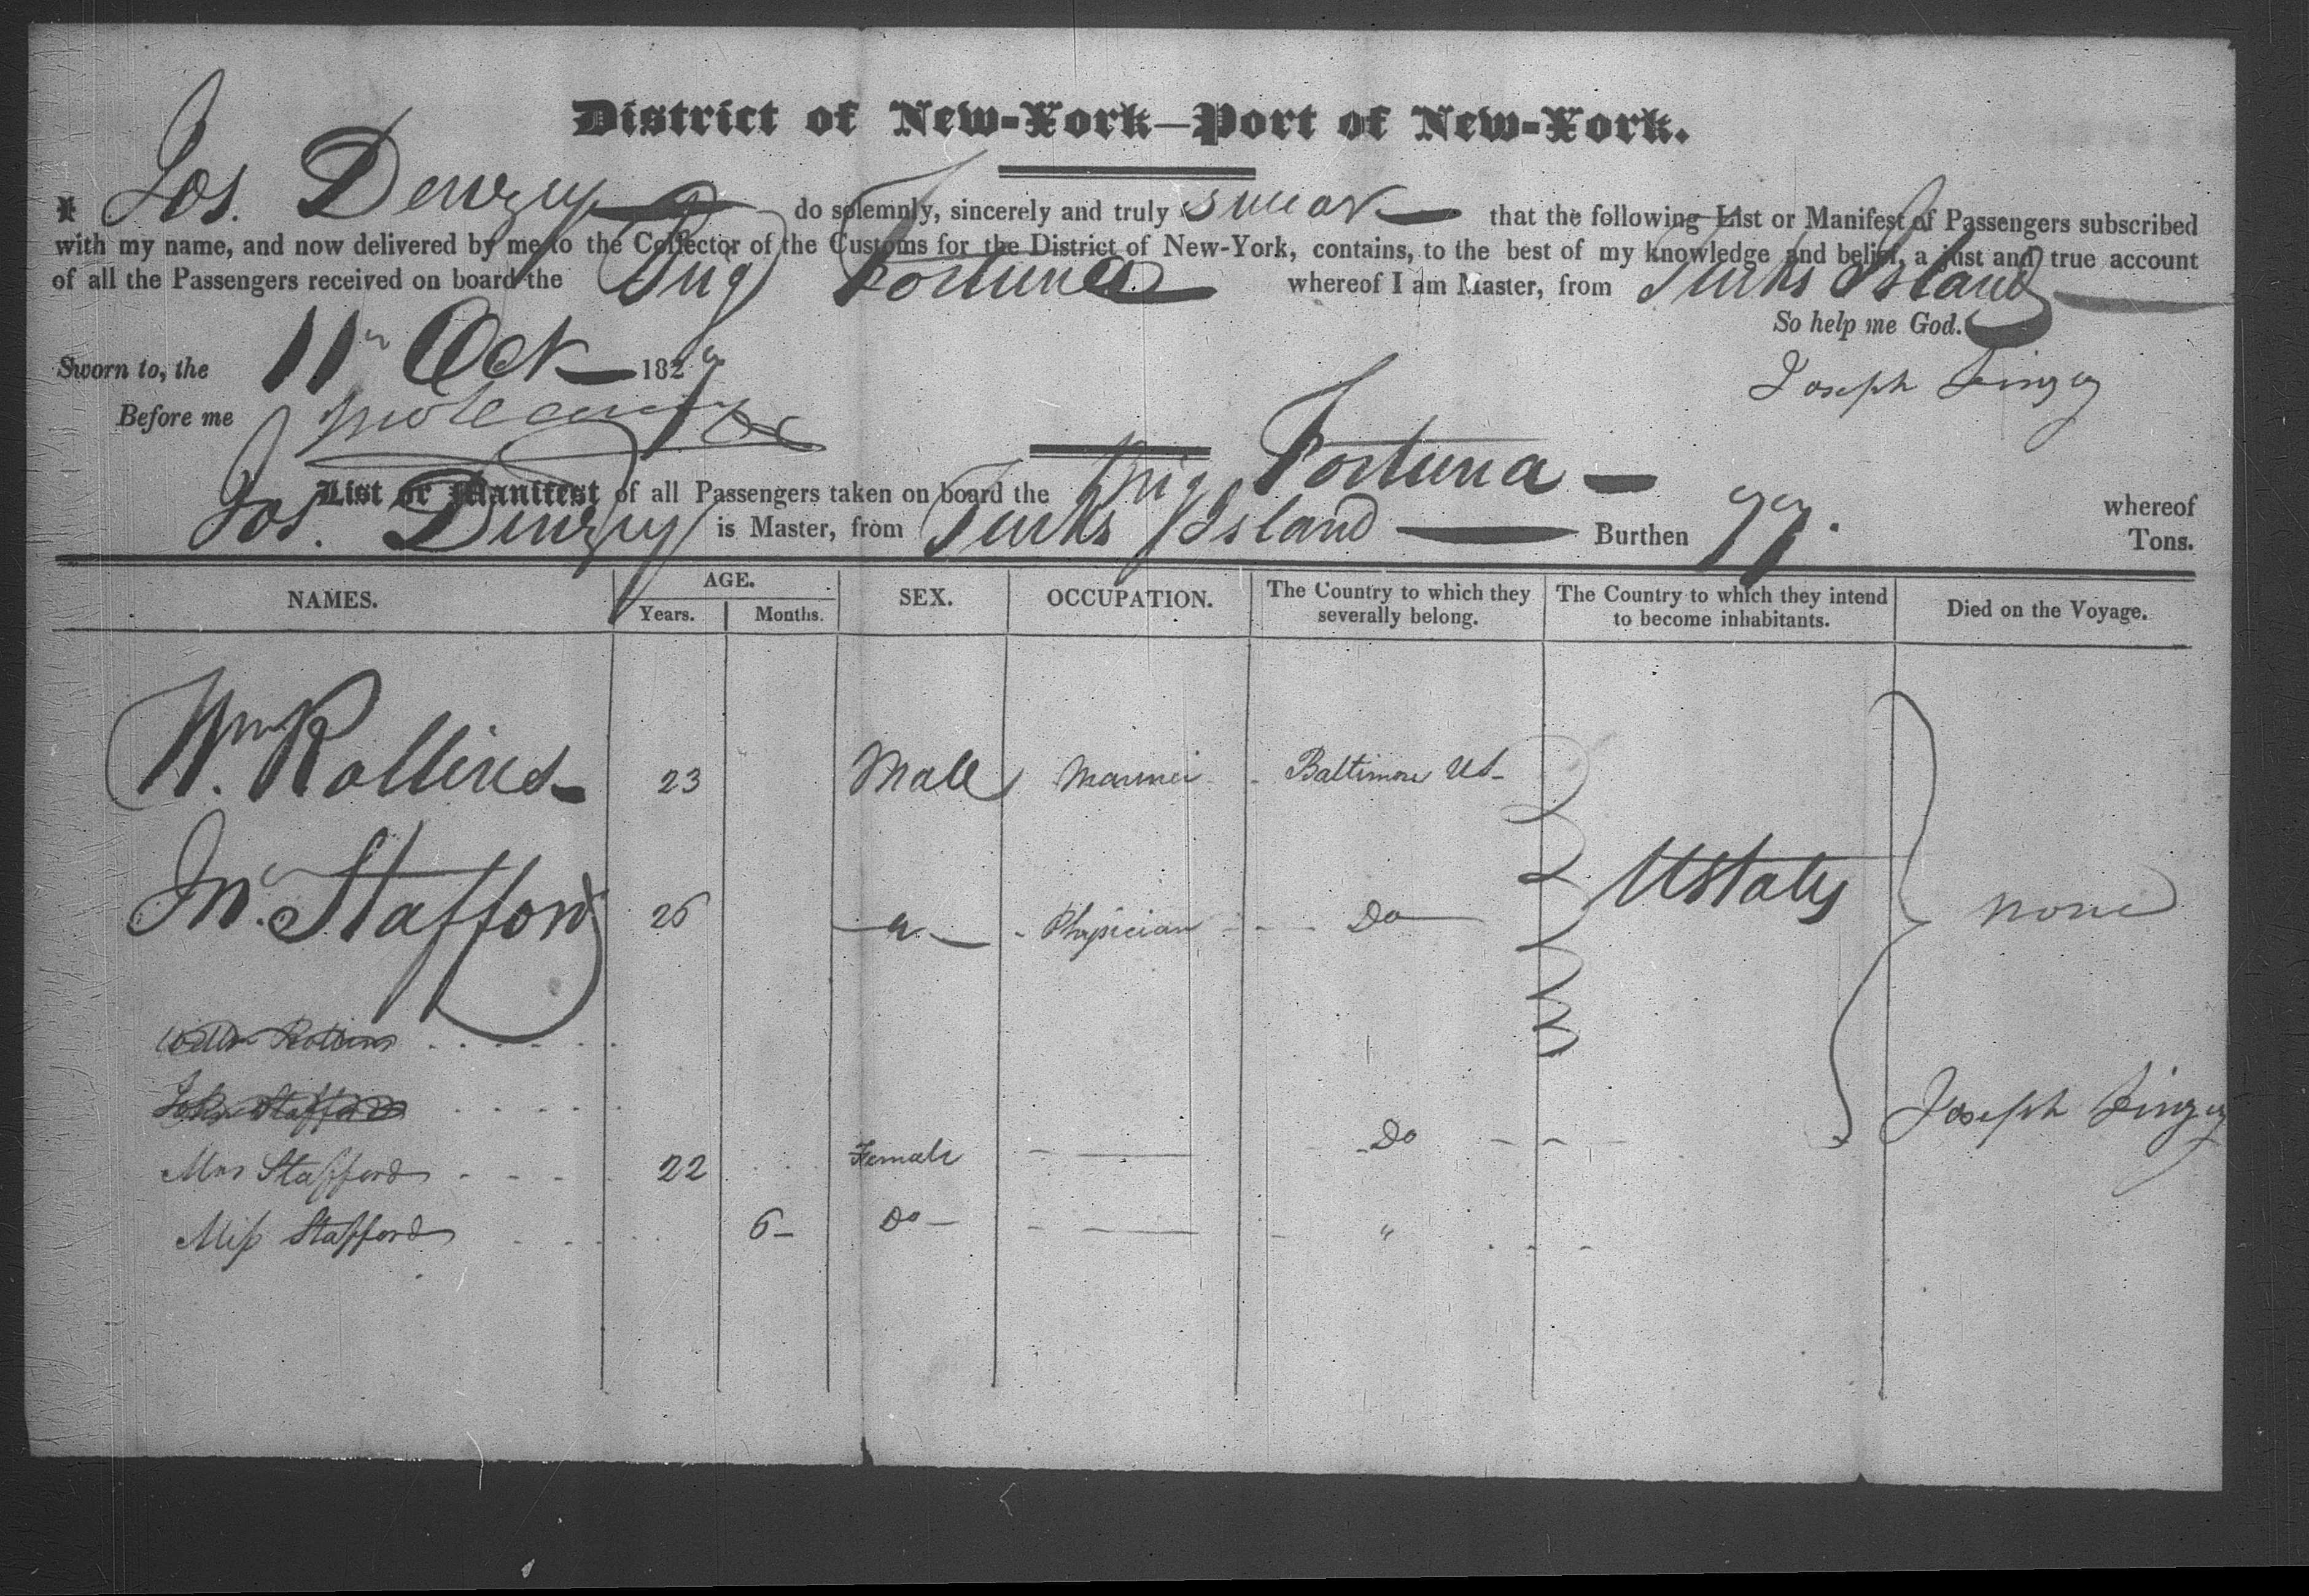 District of New-York—Port of New-York.
I Jos. Denzey do solemnly, sincerely and truly swear that the following List or Manifest of Passengers subscribed
with my name, and now delivered by me to the Collector of the Customs for the District of New-York, contains, to the best of my knowledge and belief, a just and true account
of all the Passengers received on board the Brig Fortuna whereof I am Master, from Turks Island
So help me God.
Sworn to, the 11th Oct 1827
Joseph
Before me
List or Manifest of all Passengers taken on board the Brig Fortuna whereof
Jos. Denzey is Master, from Turks Island Burthen 97. Tons.
NAMES. AGE. Years. Months. SEX. OCCUPATION. The Country to which they severally belong. The Country to which they intend to become inhabitants. Died on the Voyage.
Wm. Rollins 23 Male Mariner Baltimore US
Jno. Stafford 26 " Physician Do UStates none
Rollins
John Stafford
Joseph
Mrs Stafford 22 Female Do
Miss Stafford 6 Do "